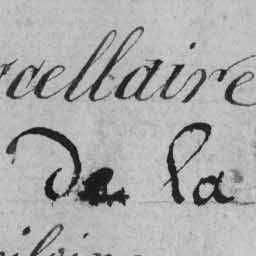 rcellaire
de la